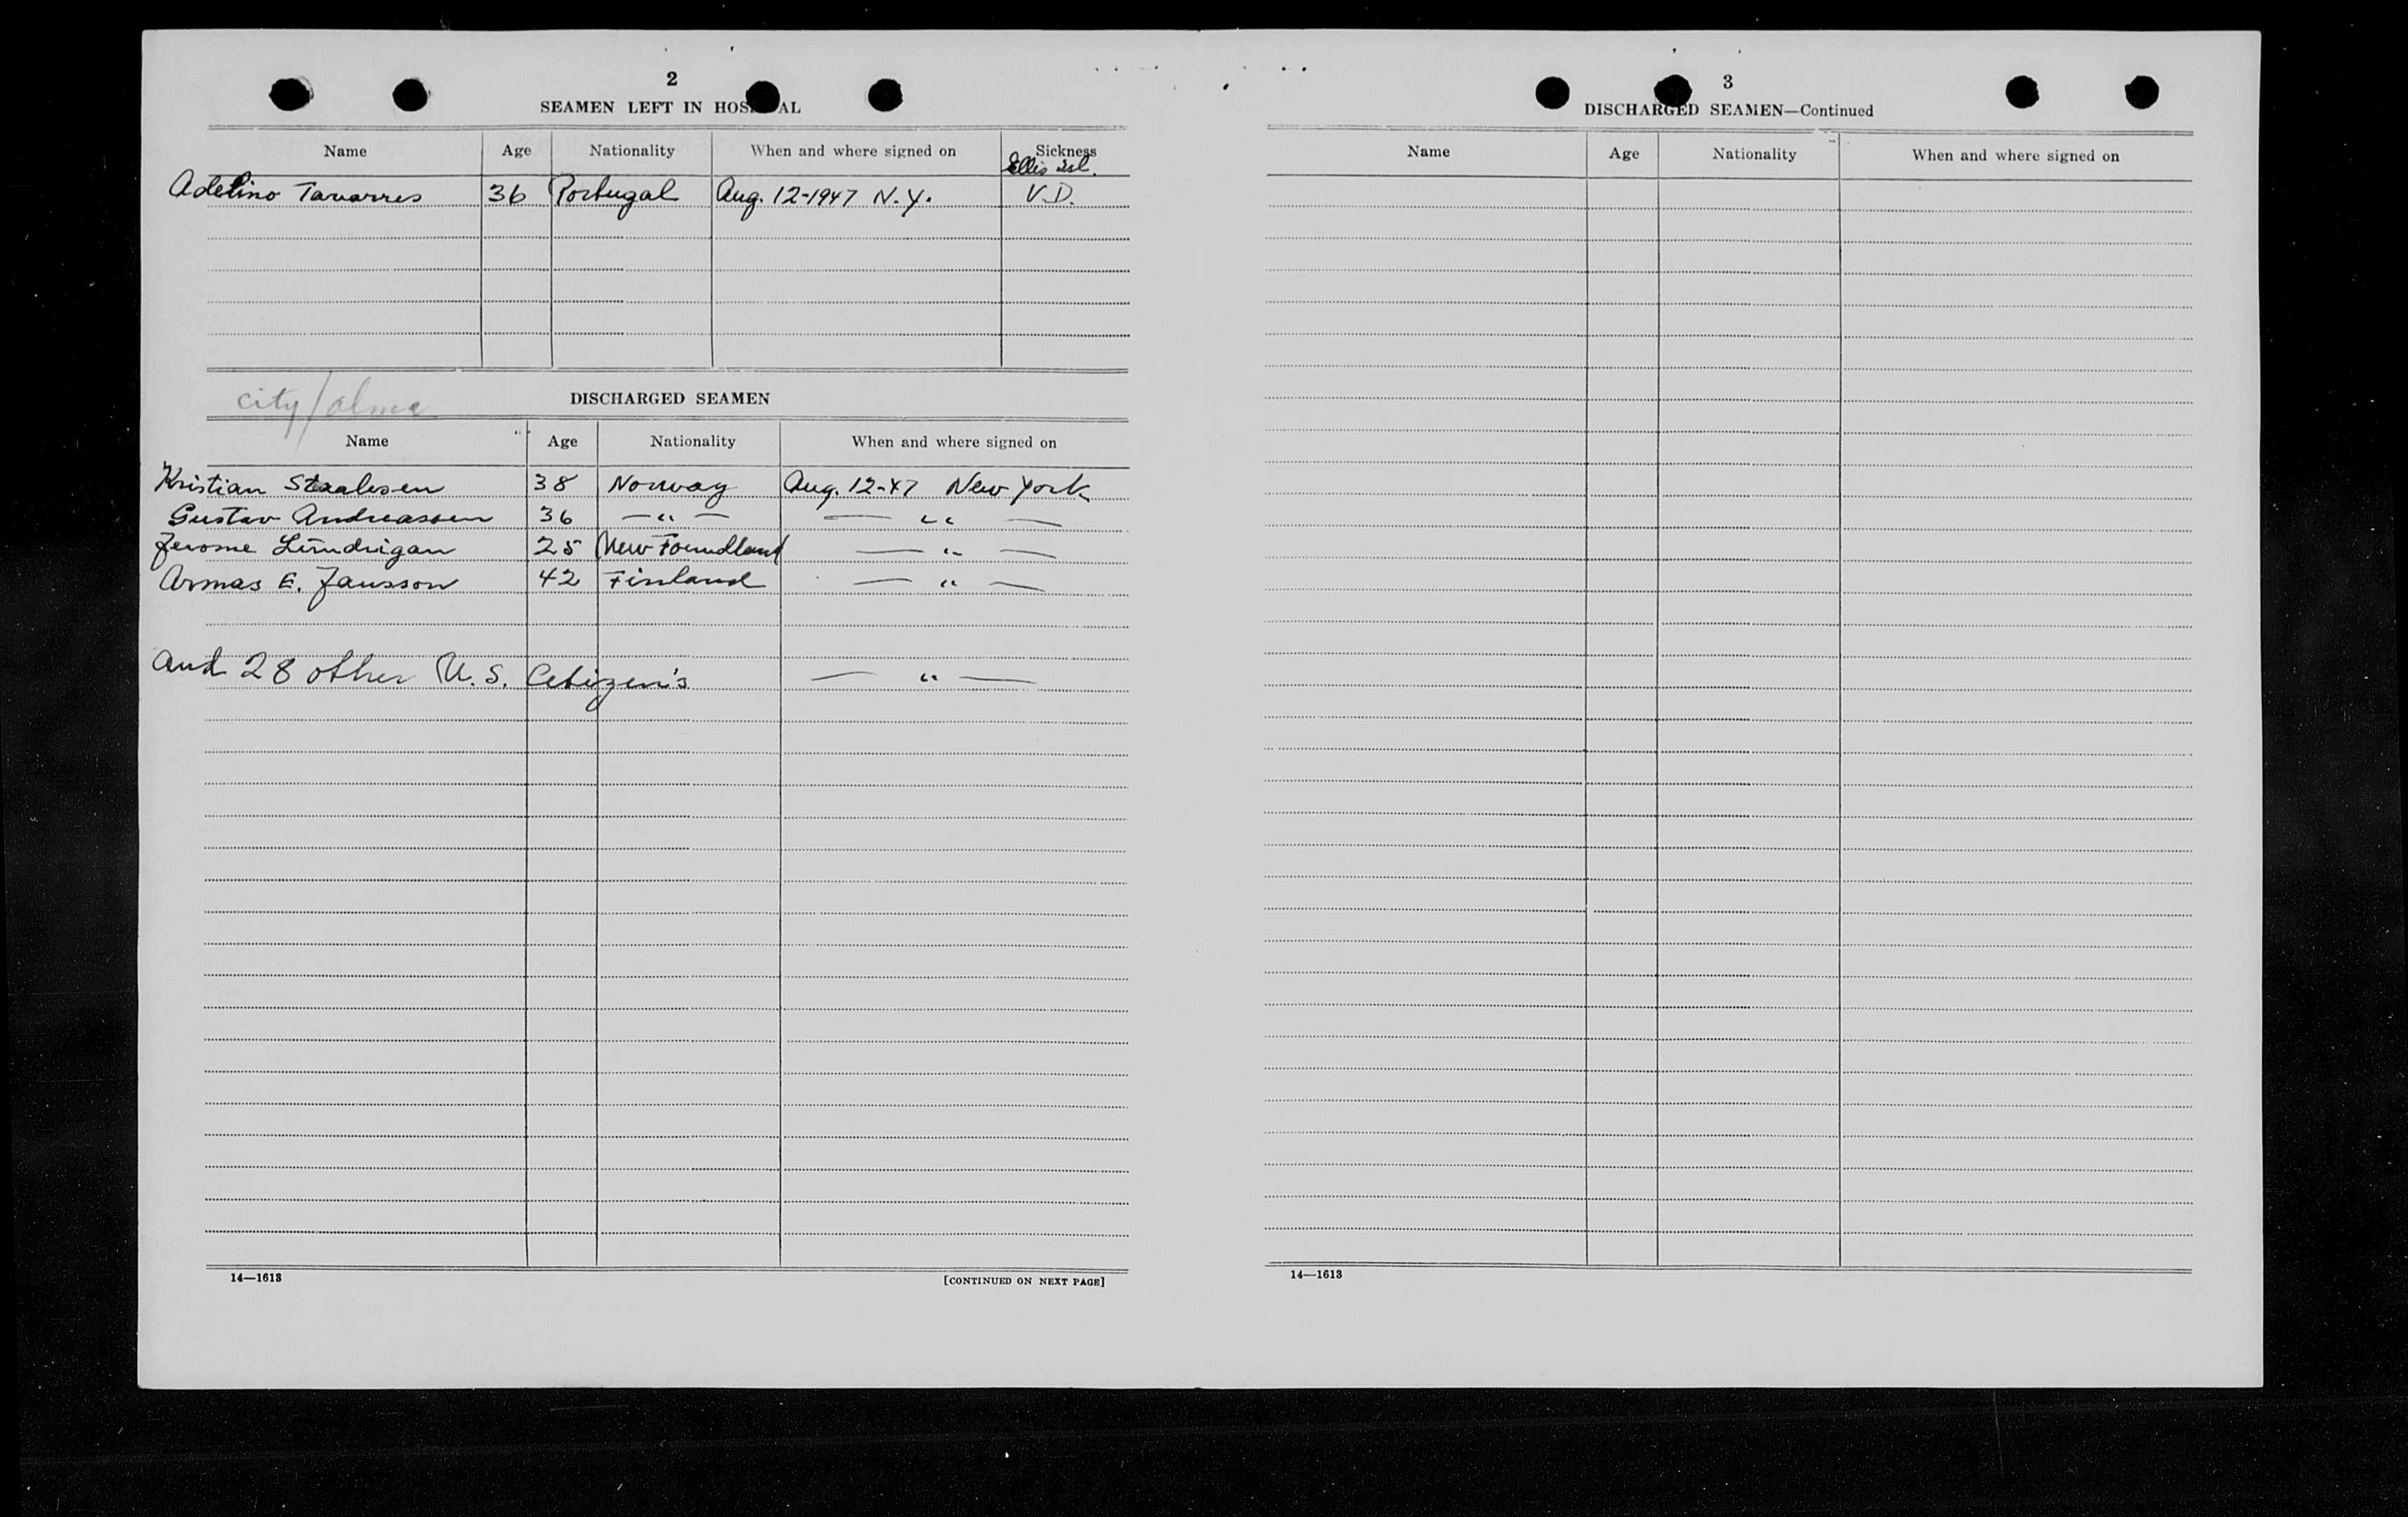 2
SEAMEN LEFT IN HOS AL
Name Age Nationality When and where signed on Sickness
Ellis Isl.
Adelino Tavarres 36 Portugal Aug. 12-1947 N.Y. V.D.
city/alma
DISCHARGED SEAMEN
Name Age Nationality When and where signed on
Kristian Staalesen 38 Norway Aug. 12-47 New York
Gustav Andreassen 36 — " — — " —
Jerome Lundrigan 25 New Foundland — " —
Armas E. Jansson 42 Finland — " —
And 28 other U.S. Citizen's — " —
14—1613 [CONTINUED ON NEXT PAGE]
3
DISCHARGED SEAMEN—Continued
Name Age Nationality When and where signed on
14—1613